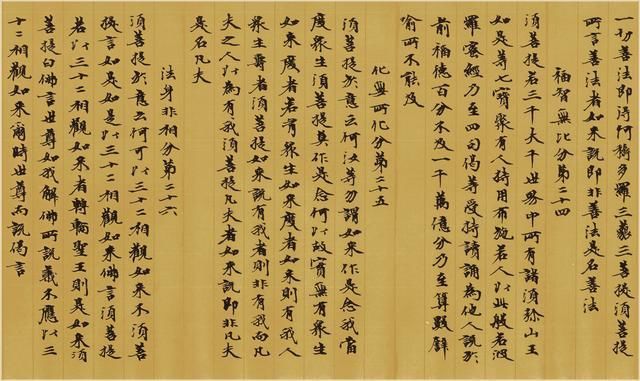 一切善法即得阿耨多羅三藐三菩提須菩提
所言善法者如來說即非善法是名善法
福智無比分第二十四
須菩提若三千大千世界中所有諸須彌山王
如是等七寶聚有人持用布施若人以此般若波
羅蜜經乃至四句偈等受持讀誦為他人說於
前福德百分不及一千萬億分乃至算數譬
喻所不能及
化無所化分第二十五
須菩提於意云何汝等勿謂如來作是念我當
度眾生須菩提莫作是念何以故實無有眾生
如來度者若有眾生如來度者如來則有我人
眾生壽者須菩提如來說有我者則非有我而凡
夫之人以為有我須菩提凡夫者如來說即非凡夫
是名凡夫
法身非相分第二十六
須菩提於意云何可以三十二相觀如來不須菩
提言如是如是以三十二相觀如來佛言須菩提
若以三十二相觀如來者轉輪聖王則是如來須
菩提白佛言世尊如我解佛所說義不應以三
十二相觀如來爾時世尊而說偈言